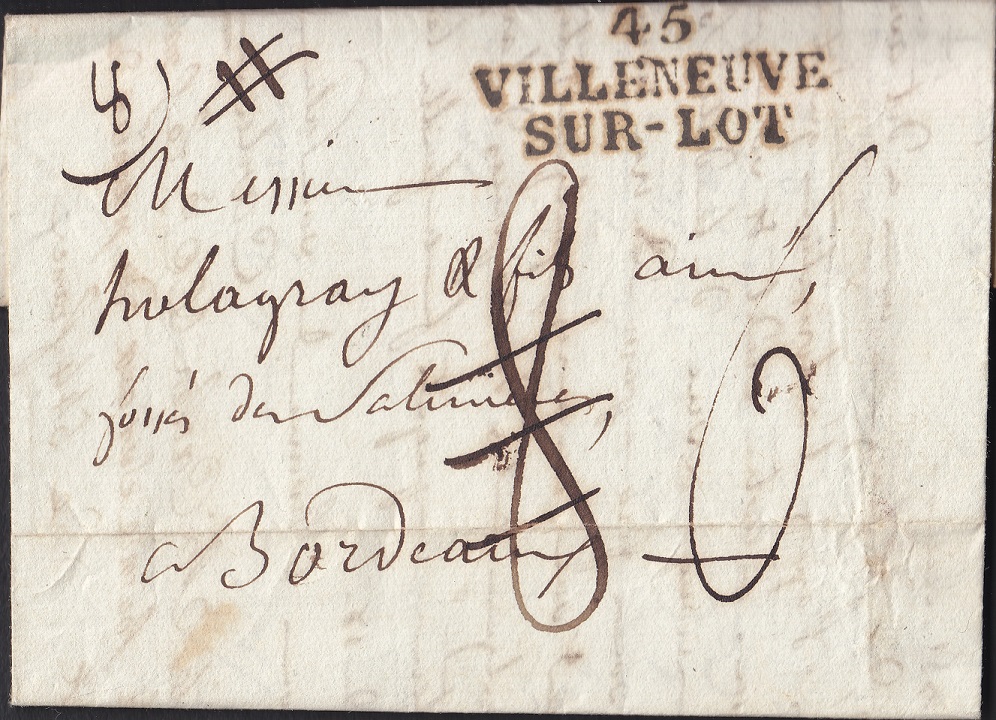 45
VILLENEUVE
SUR-LOT
8)
Messieurs
holagray & fils aîné,
fossés des Salinières,
8
6
a Bordeaux